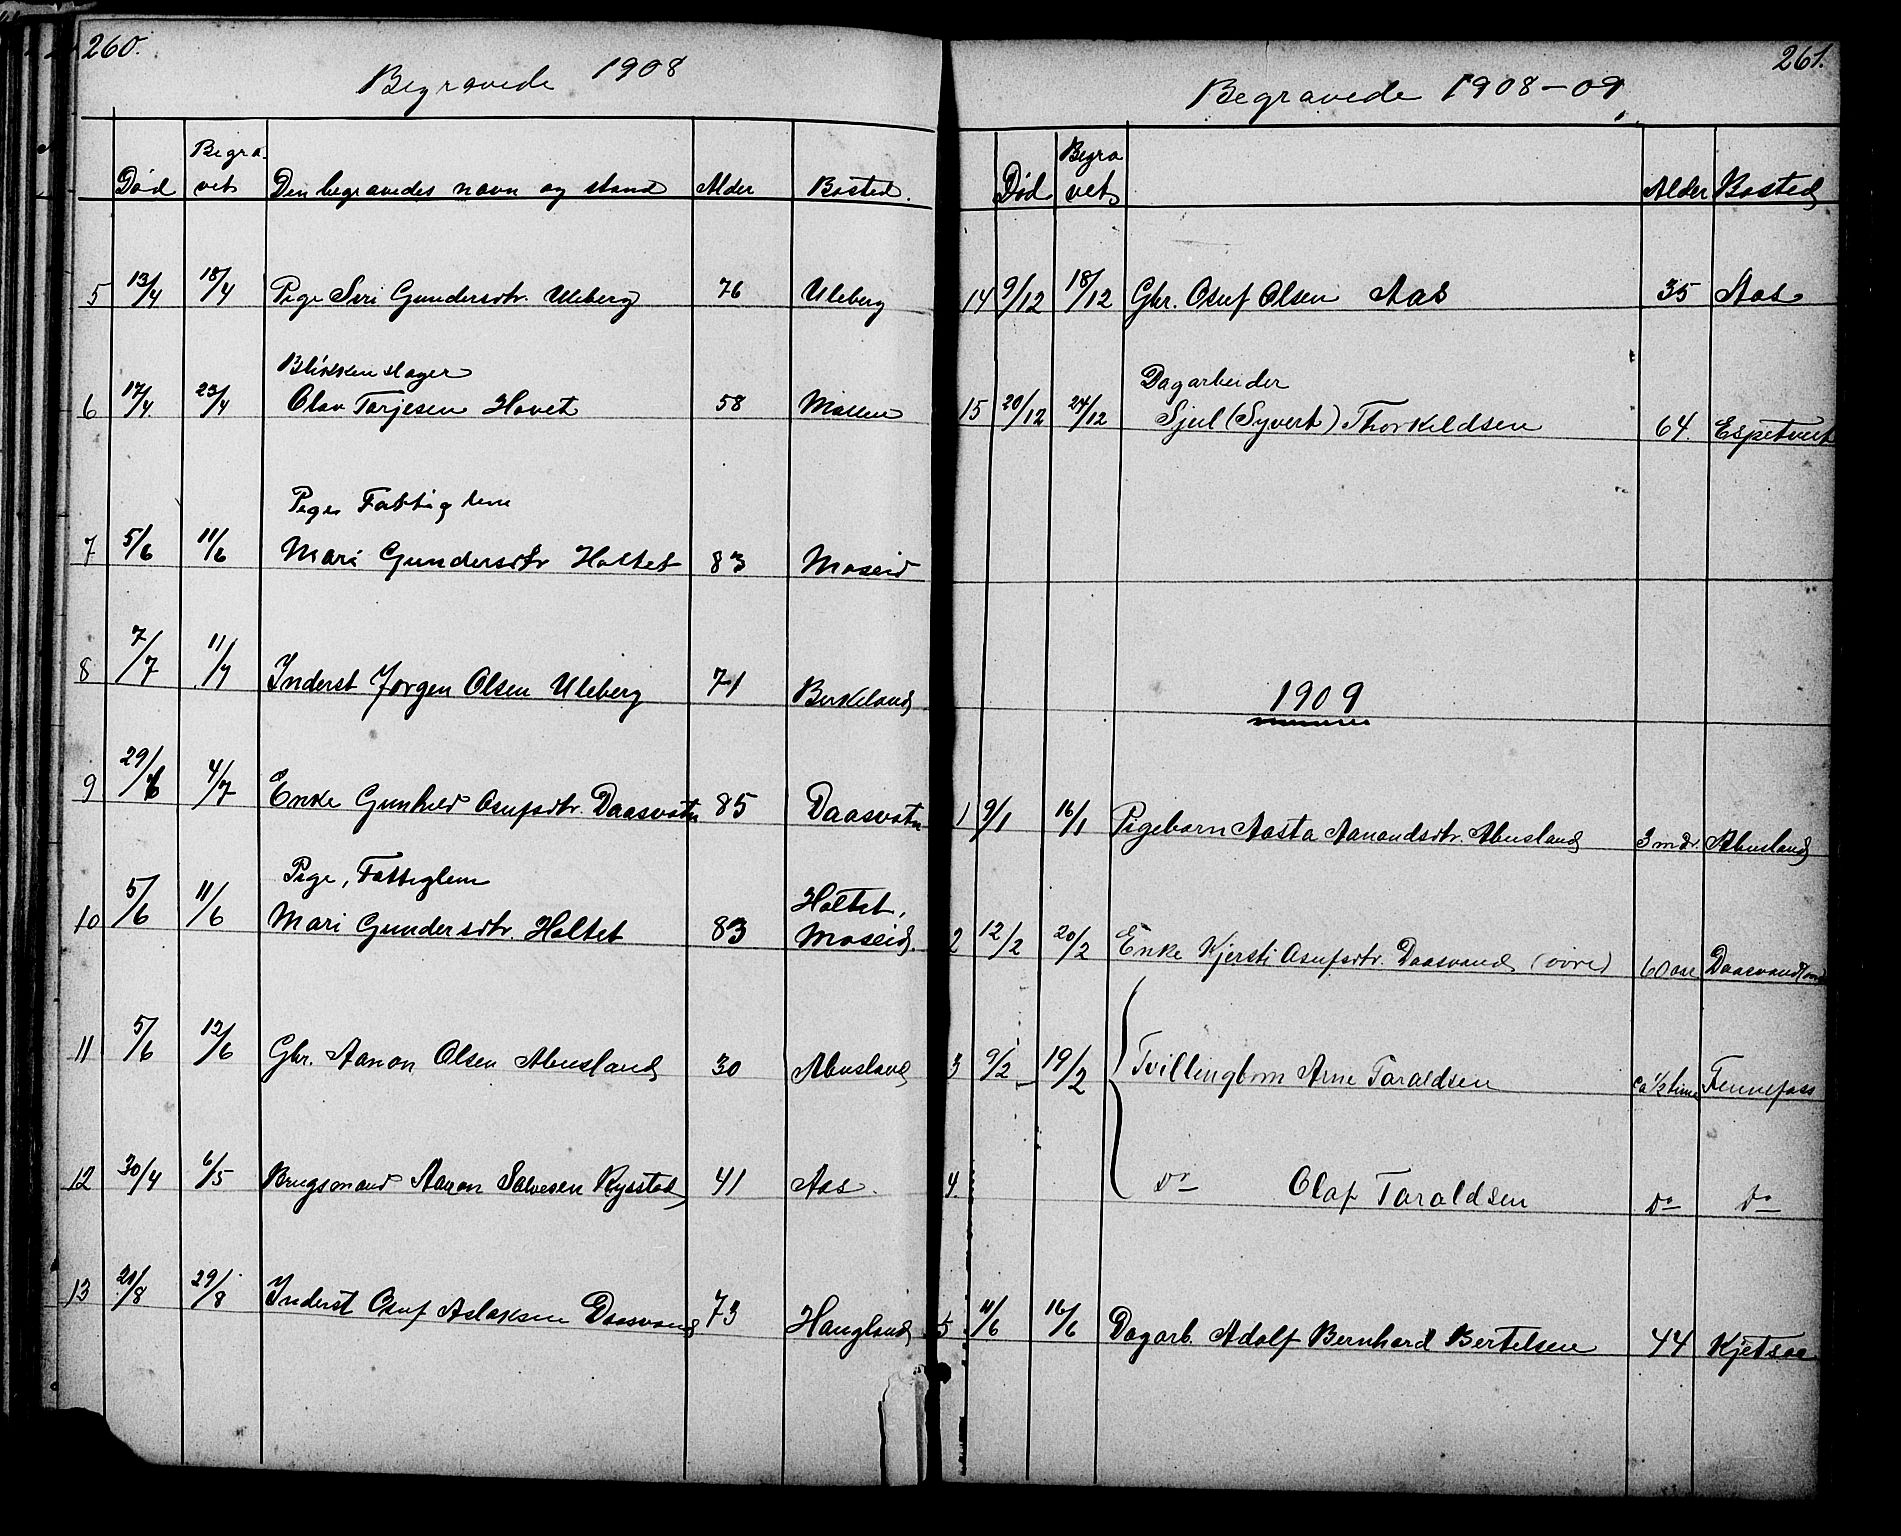 260.
Begravede 1908
Død Begravet Den begravedes navn og stand Alder Bosted.
5 13/4 18/4 Pige Siri Gundersdtr. Uleberg 76 Uleberg
Blikkenslager
6 17/4 23/4 Olav Tarjesen Hovet 58 Moseid
Pige Fattiglem
7 5/6 11/6 Mari Gundersdtr Holtet 83 Moseid
8 7/7 11/7 Inderst Jørgen Olsen Uleberg 71 Berkeland
9 29/6 4/7 Enke Gunhild Osufsdtr. Daasvatn 85 Daasvatn
Pige, Fattiglem
10 5/6 11/6 Mari Gundersdtr. Holtet 83 Holtet, Moseid.
11 5/6 12/6 Gbr. Aanon Olsen Abusland 30 Abusland
12 30/4 6/5 Brugsmand Aanon Salvesen Rysstad 41 Aas.
13 21/8 29/8 Inderst Osuf Aslaksen Daasvand 73 Haugland
261.
Begravede 1908-09
Død Begravet Alder Bosted
14 9/12 18/12 Gbr. Osuf Olsen Aas 35 Aas
Dagarbeider
15 20/12 24/12 Sjul (Syvert) Thorkildsen 64. Espetveit
1909
1 9/1 16/1 Pigebarn Aasta Aanondsdtr. Abusland 3 mdr. Abusland
2 12/2 20/2 Enke Kjersti Osufsdtr. Daasvand (øvre) 60 aar Daasvand
3 9/2 19/2 Tvillingbrn Arne Taraldsen ca 1/2 time Fennefoss
4. Do Olaf Taraldsen Do Do
5 11/6 16/6 Dagarb. Adolf Bernhard Bertelsen 44 Kjetsaa